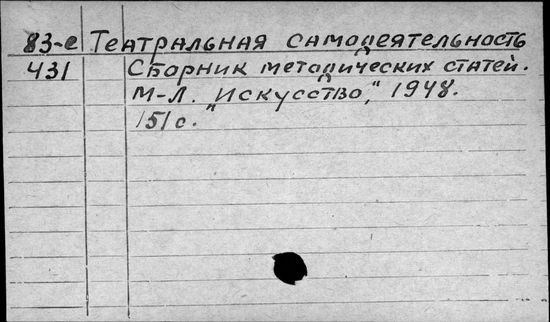 83-е Театральная самодеятельность
431 Сборник методических статей.
М-Л. "Искусство", 1948.
151 с.